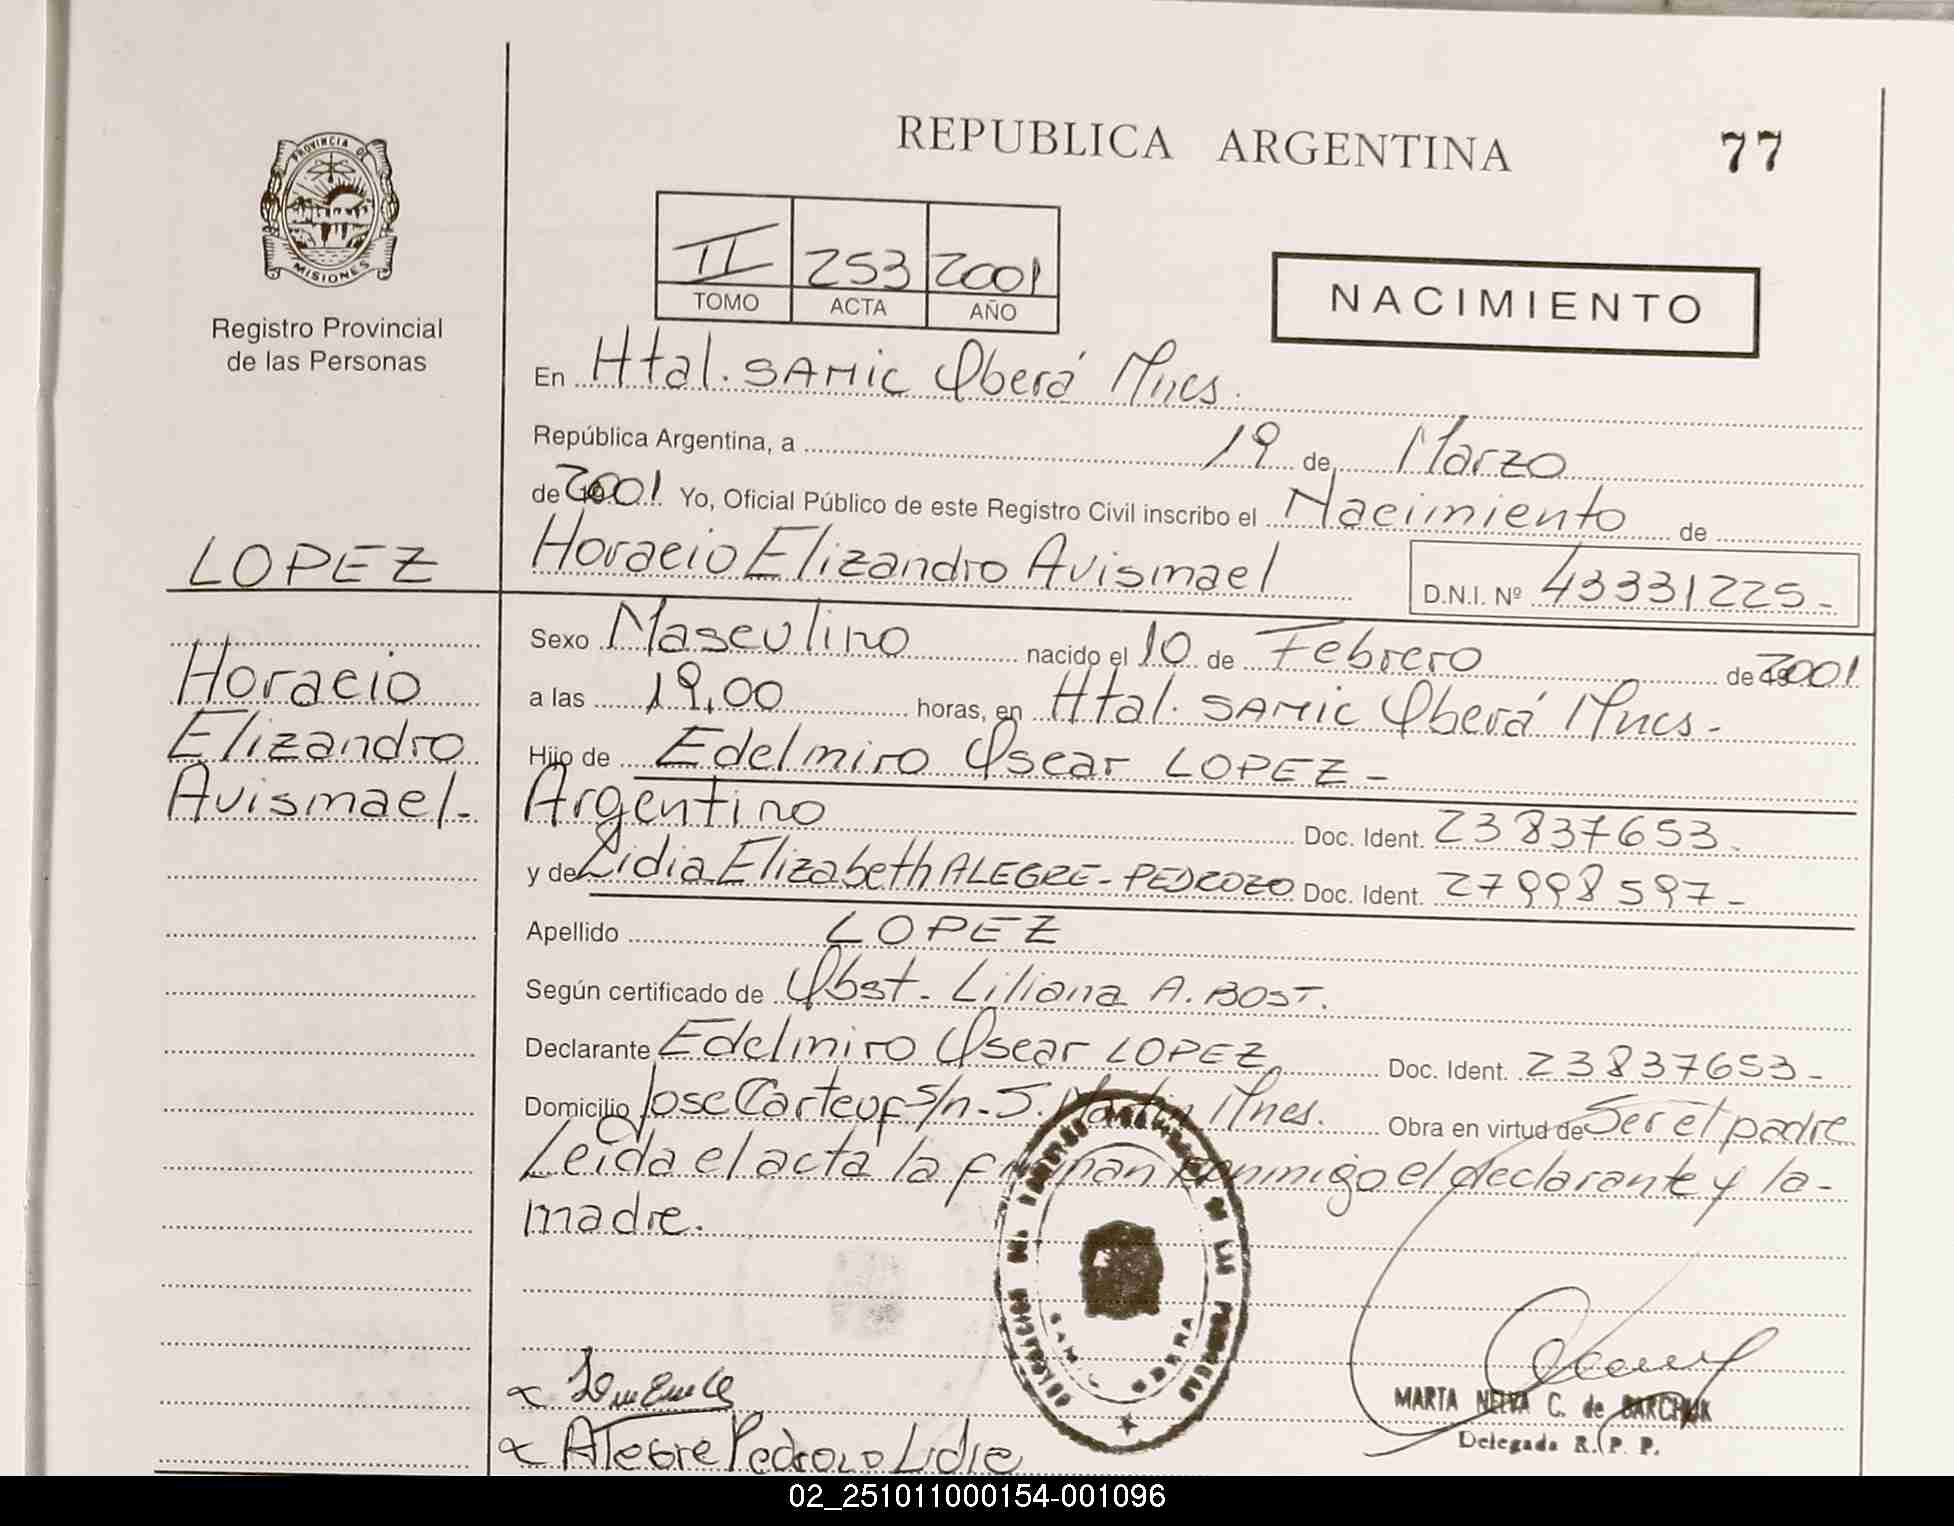 REPUBLICA ARGENTINA
77
PROVINCIA DE
MISIONES
Registro Provincial
de las Personas
II 253 2001
TOMO ACTA AÑO
NACIMIENTO
En Htal. SAMIC Oberá Mnes.
República Argentina, a 19 de Marzo
de 2001 Yo, Oficial Público de este Registro Civil inscribo el Nacimiento de
LOPEZ
Horacio Elizandro Avismael D.N.I. Nº 43331225-
Horacio
Elizandro
Avismael-
Sexo Masculino nacido el 10 de Febrero de 2001
a las 19,00 horas, en Htal. SAMIC Oberá Mnes-
Hijo de Edelmiro Oscar LOPEZ-
Argentino Doc. Ident. 23837653-
y de Lidia Elizabeth ALEGRE-PEDROZO Doc. Ident. 27998597-
Apellido LOPEZ
Según certificado de Obst. Liliana A. BOST.
Declarante Edelmiro Oscar LOPEZ Doc. Ident. 23837653-
Domicilio Jose s/n-S. Martin Mnes. Obra en virtud de Ser el padre
Leida el acta la firman conmigo el declarante y la-
madre.
DE LAS PERSONAS
SAMIC OBERA
MARTA NELVA C. de BARCHUK
Delegada R. P. P.
Alegre Pedrozo Lidie
02_251011000154-001096